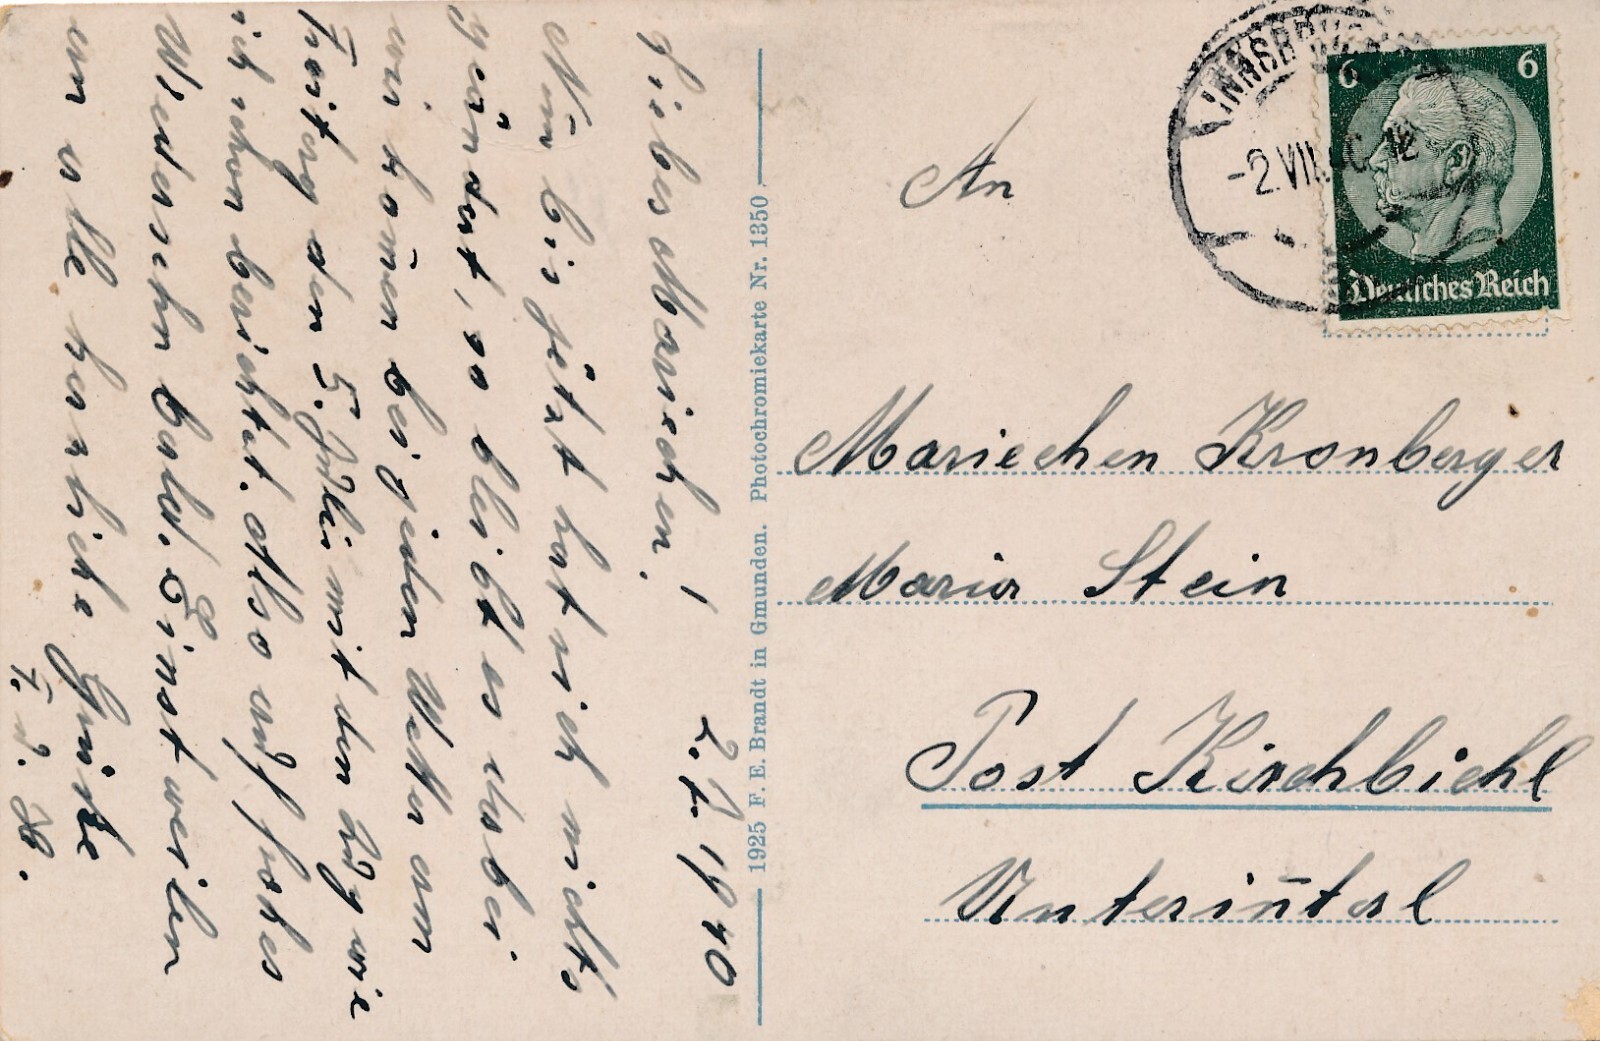 2.7.1940
Liebes Mariechen!
Nun bis jetzt hat sich nichts
geändert, so bleibt es dabei
wir kom̄en bei jedem Wetter am
Freitag den 5. Juli mit dem Zug wie
ich schon berichtet. Also auf frohes
Wiedersehn bald. Einstweilen
an alle herzliche Grüße
F. d. H.
1925 F. E. Brandt in Gmunden. Photochromiekarte Nr. 1350
INNSBRUCK
-2.VII.40.-18
6 6
Deutsches Reich
An
Mariechen Kronberger
Maria Stein
Post Kirchbichl
Unterin̄tal